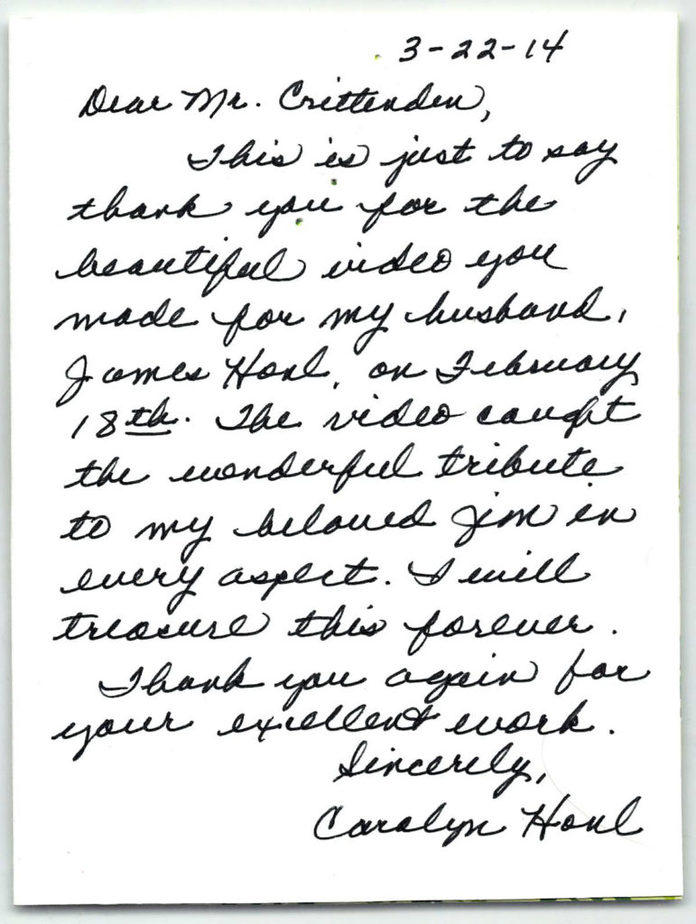 3-22-14
Dear Mr. Crittenden,
This is just to say
thank you for the
beautiful video you
made for my husband,
James Honl, on February
18th. The video caught
the wonderful tribute
to my beloved Jim in
every aspect. I will
treasure this forever.
Thank you again for
your excellent work.
Sincerely,
Caralyn Honl